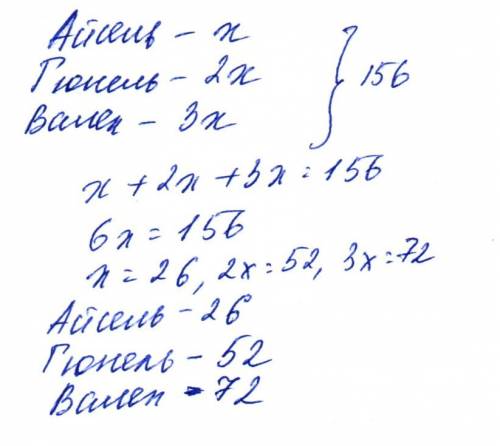 Айсель - x
Гюнель - 2x
Валех - 3x
} 156
x + 2x + 3x = 156
6x = 156
x = 26, 2x = 52, 3x = 72
Айсель - 26
Гюнель - 52
Валех - 72